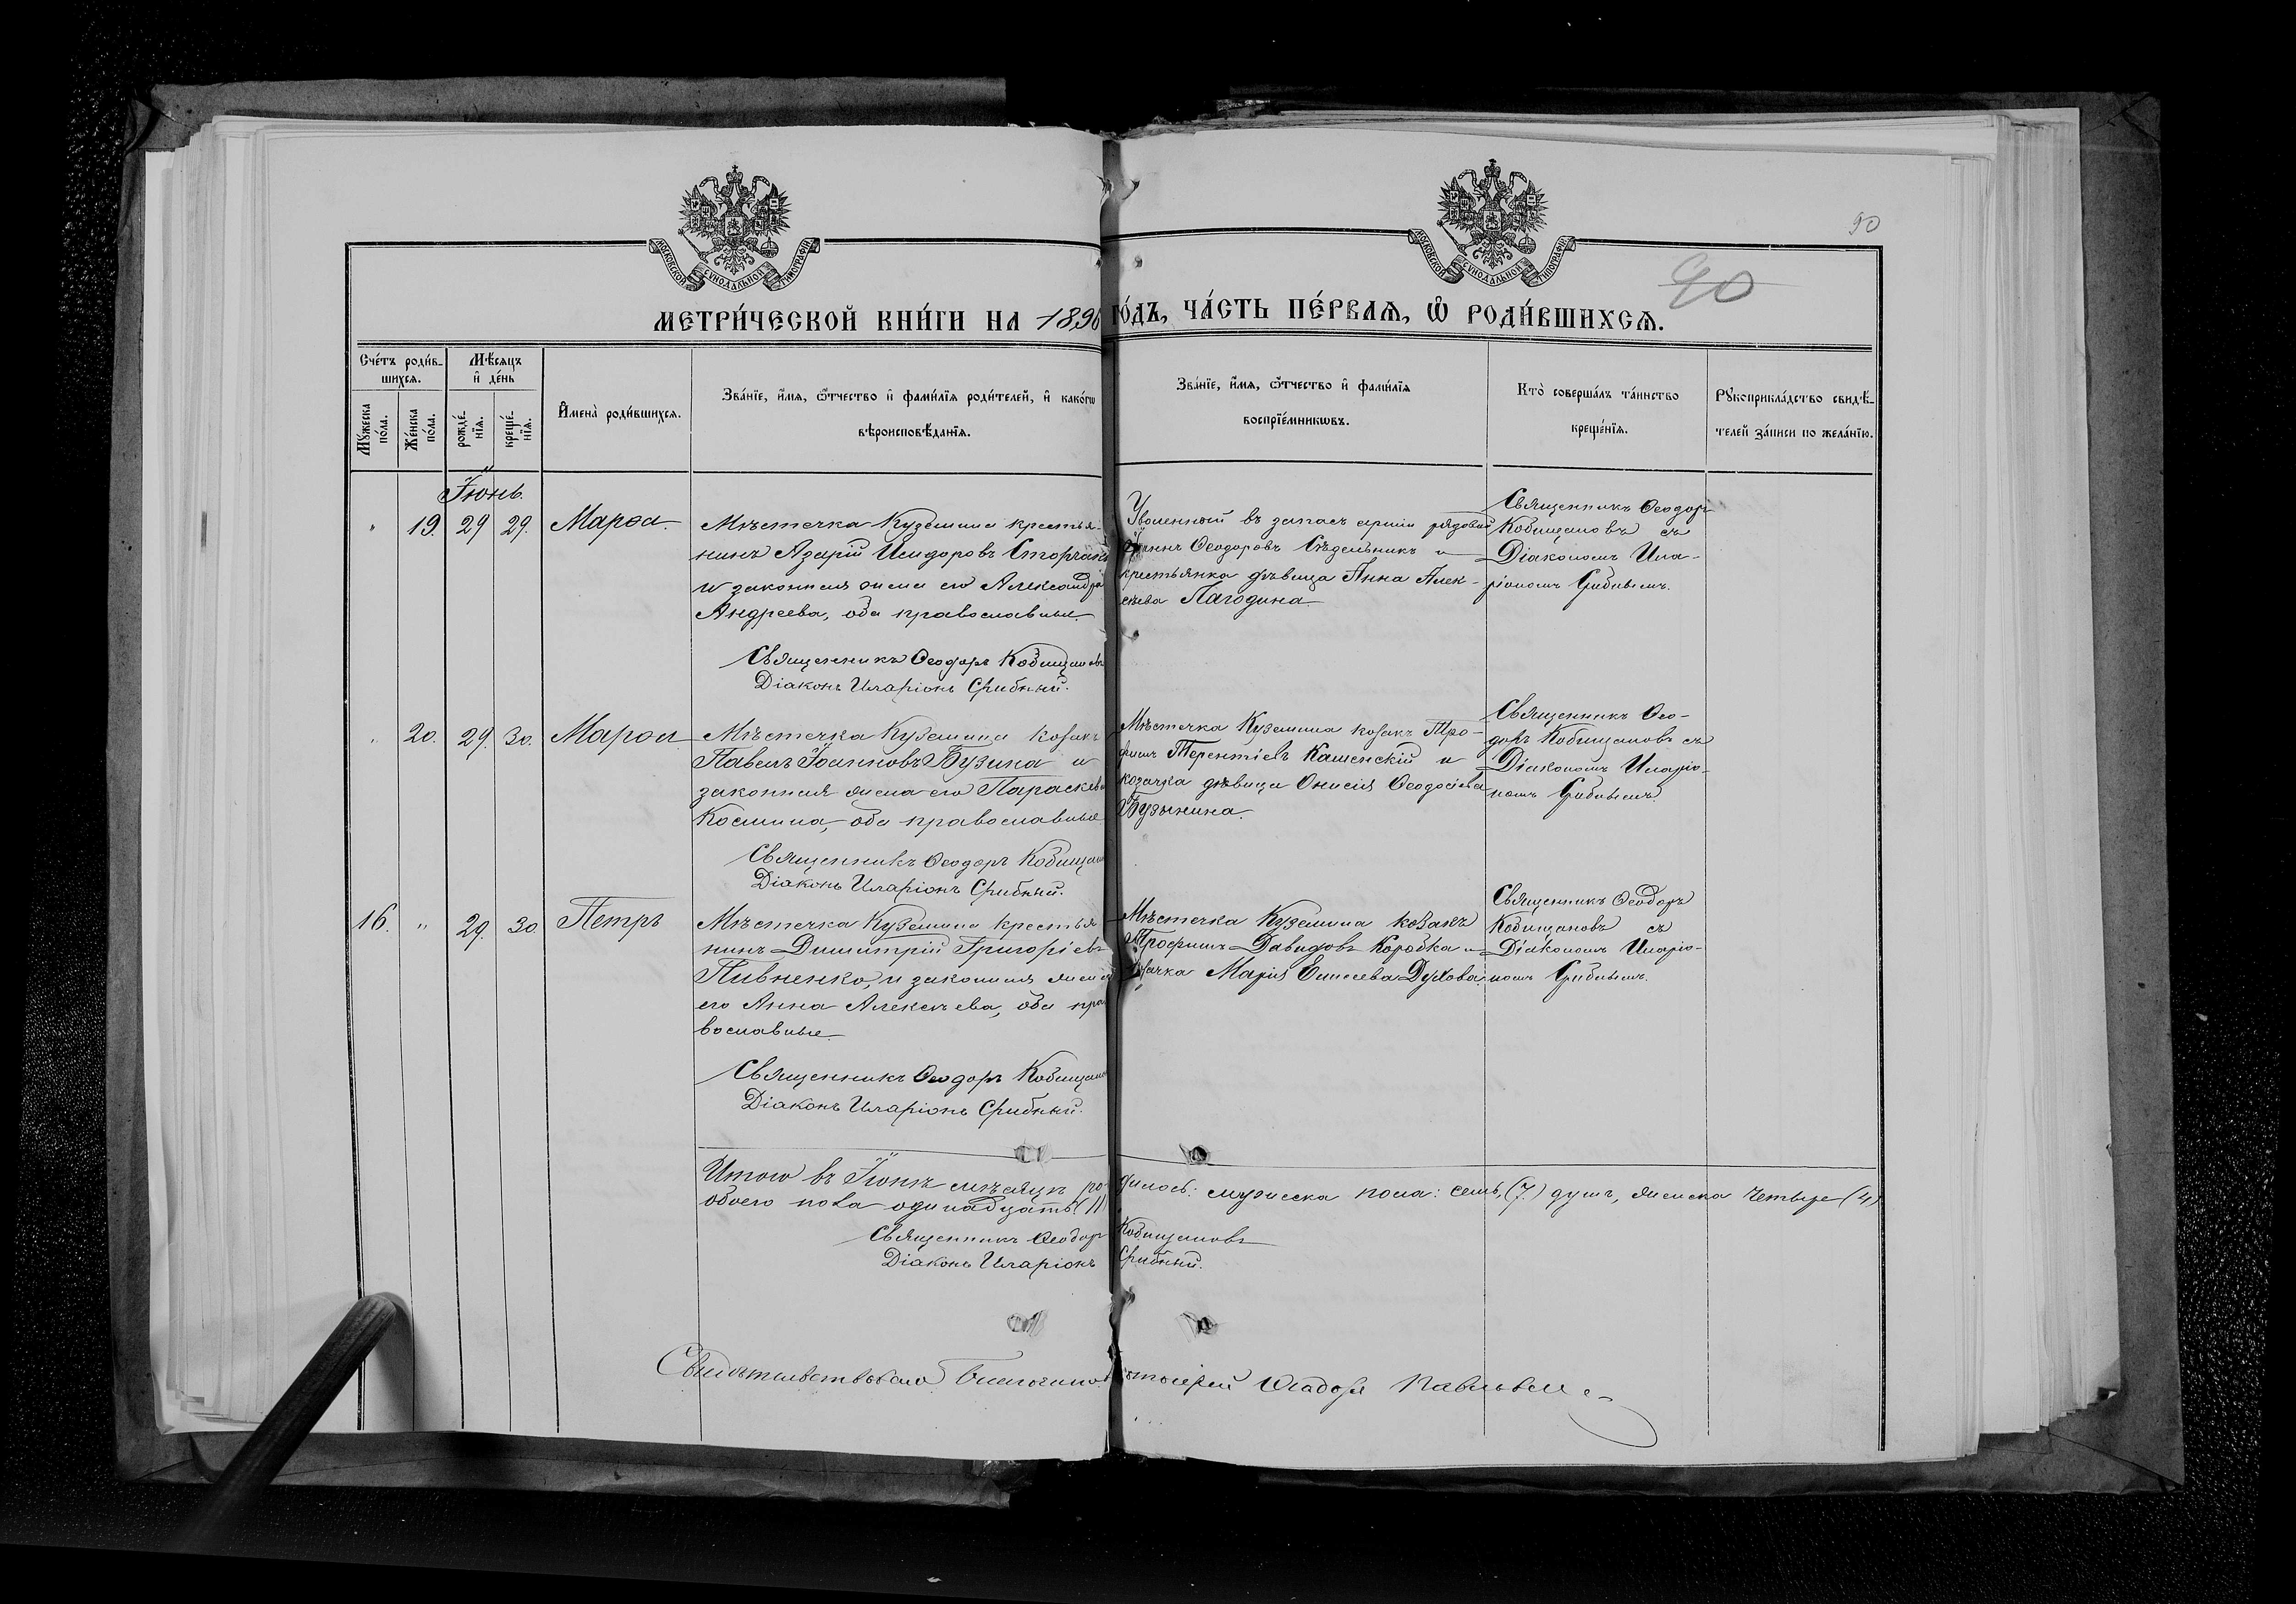 90
90
МОСКОВСКОЙ СѴНОДАЛЬНОЙ ТИПОГРАФІИ
МОСКОВСКОЙ СѴНОДАЛЬНОЙ ТИПОГРАФІИ
МЕТРИ́ЧЕСКОЙ КНИ́ГИ НА 1896 ГО́ДЪ, ЧА́СТЬ ПЕ́РВАѦ, Ѽ РОДИ́ВШИХСѦ.
Сче́тъ роди́в-
шихсѧ.
Мѣ́сѧцъ
и҆ де́нь
Мꙋ́жеска по́ла.
Же́нска по́ла.
рожде́-нїѧ.
креще́-нїѧ.
И҆мена̀ роди́вшихсѧ.
Зва́нїе, и҆́мѧ, ѻ҆́тчество и҆ фами́лїѧ роди́телей, и҆ како́гѡ
вѣроисповѣ́данїѧ.
Зва́нїе, и҆́мѧ, ѻ҆́тчество и҆ фами́лїѧ
воспрїе́мникѡвъ.
Кто̀ соверша́лъ та́инство
креще́нїѧ.
Рꙋкоприкла́дство свидѣ́-
телей за́писи по жела́нїю.
Іюнь.
" 19. 29 29. Марѳа.
Мѣстечка Куземина крестья-
нинъ Азарій Исидоровъ
и законная жена его Александра
Андреева, оба православные.
Священникъ Ѳеодоръ Кобищановъ
Діаконъ Иларіонъ Срибный.
Уволенный въ запасъ арміи рядовой
Ѳеодоровъ Сѣдельникъ и
крестьянка дѣвица Анна Алек-
сѣева Пагодина
Священникъ Ѳеодоръ
Кобищановъ съ
Діакономъ Ила-
ріономъ Срибнымъ.
" 20. 29. 30. Марѳа
Мѣстечка Куземина козакъ
Павелъ Іоанновъ Бузина и
законная жена его Параскева
Космина, оба православные
Священникъ Ѳеодоръ Кобищановъ
Діаконъ Иларіонъ Срибный.
Мѣстечка Куземина козакъ Тро-
фимъ Терентіевъ Кашенскій и
козачка дѣвица Онисія Ѳеодосіева
Бузынина.
Священникъ Ѳео-
доръ Кобищановъ съ
Діакономъ Иларіо-
номъ Срибнымъ.
16. " 29. 30 Петръ
Мѣстечка Куземина крестья
нинъ Димитрій Григоріевъ
Пивненко, и законная жена
его Анна Алексѣева, оба пра
вославные
Священникъ Ѳеодоръ Кобищановъ
Діаконъ Иларіонъ Срибный.
Мѣстечка Куземина козакъ
Трофимъ Давидовъ Коробка и
козачка Марія Елисеева Духова.
Священникъ Ѳеодоръ
Кобищановъ съ
Діакономъ Иларіо-
номъ Срибнымъ.
Итого въ Іюнѣ мѣсяцѣ родилось: мужеска пола: семь (7) душъ, женска четыре (4)
обоего пола одинадцать (11)
Священникъ Ѳеодоръ Кобищановъ
Діаконъ Иларіонъ Срибный.
Свидѣтельствовалъ Благочинный Ѳеодоръ